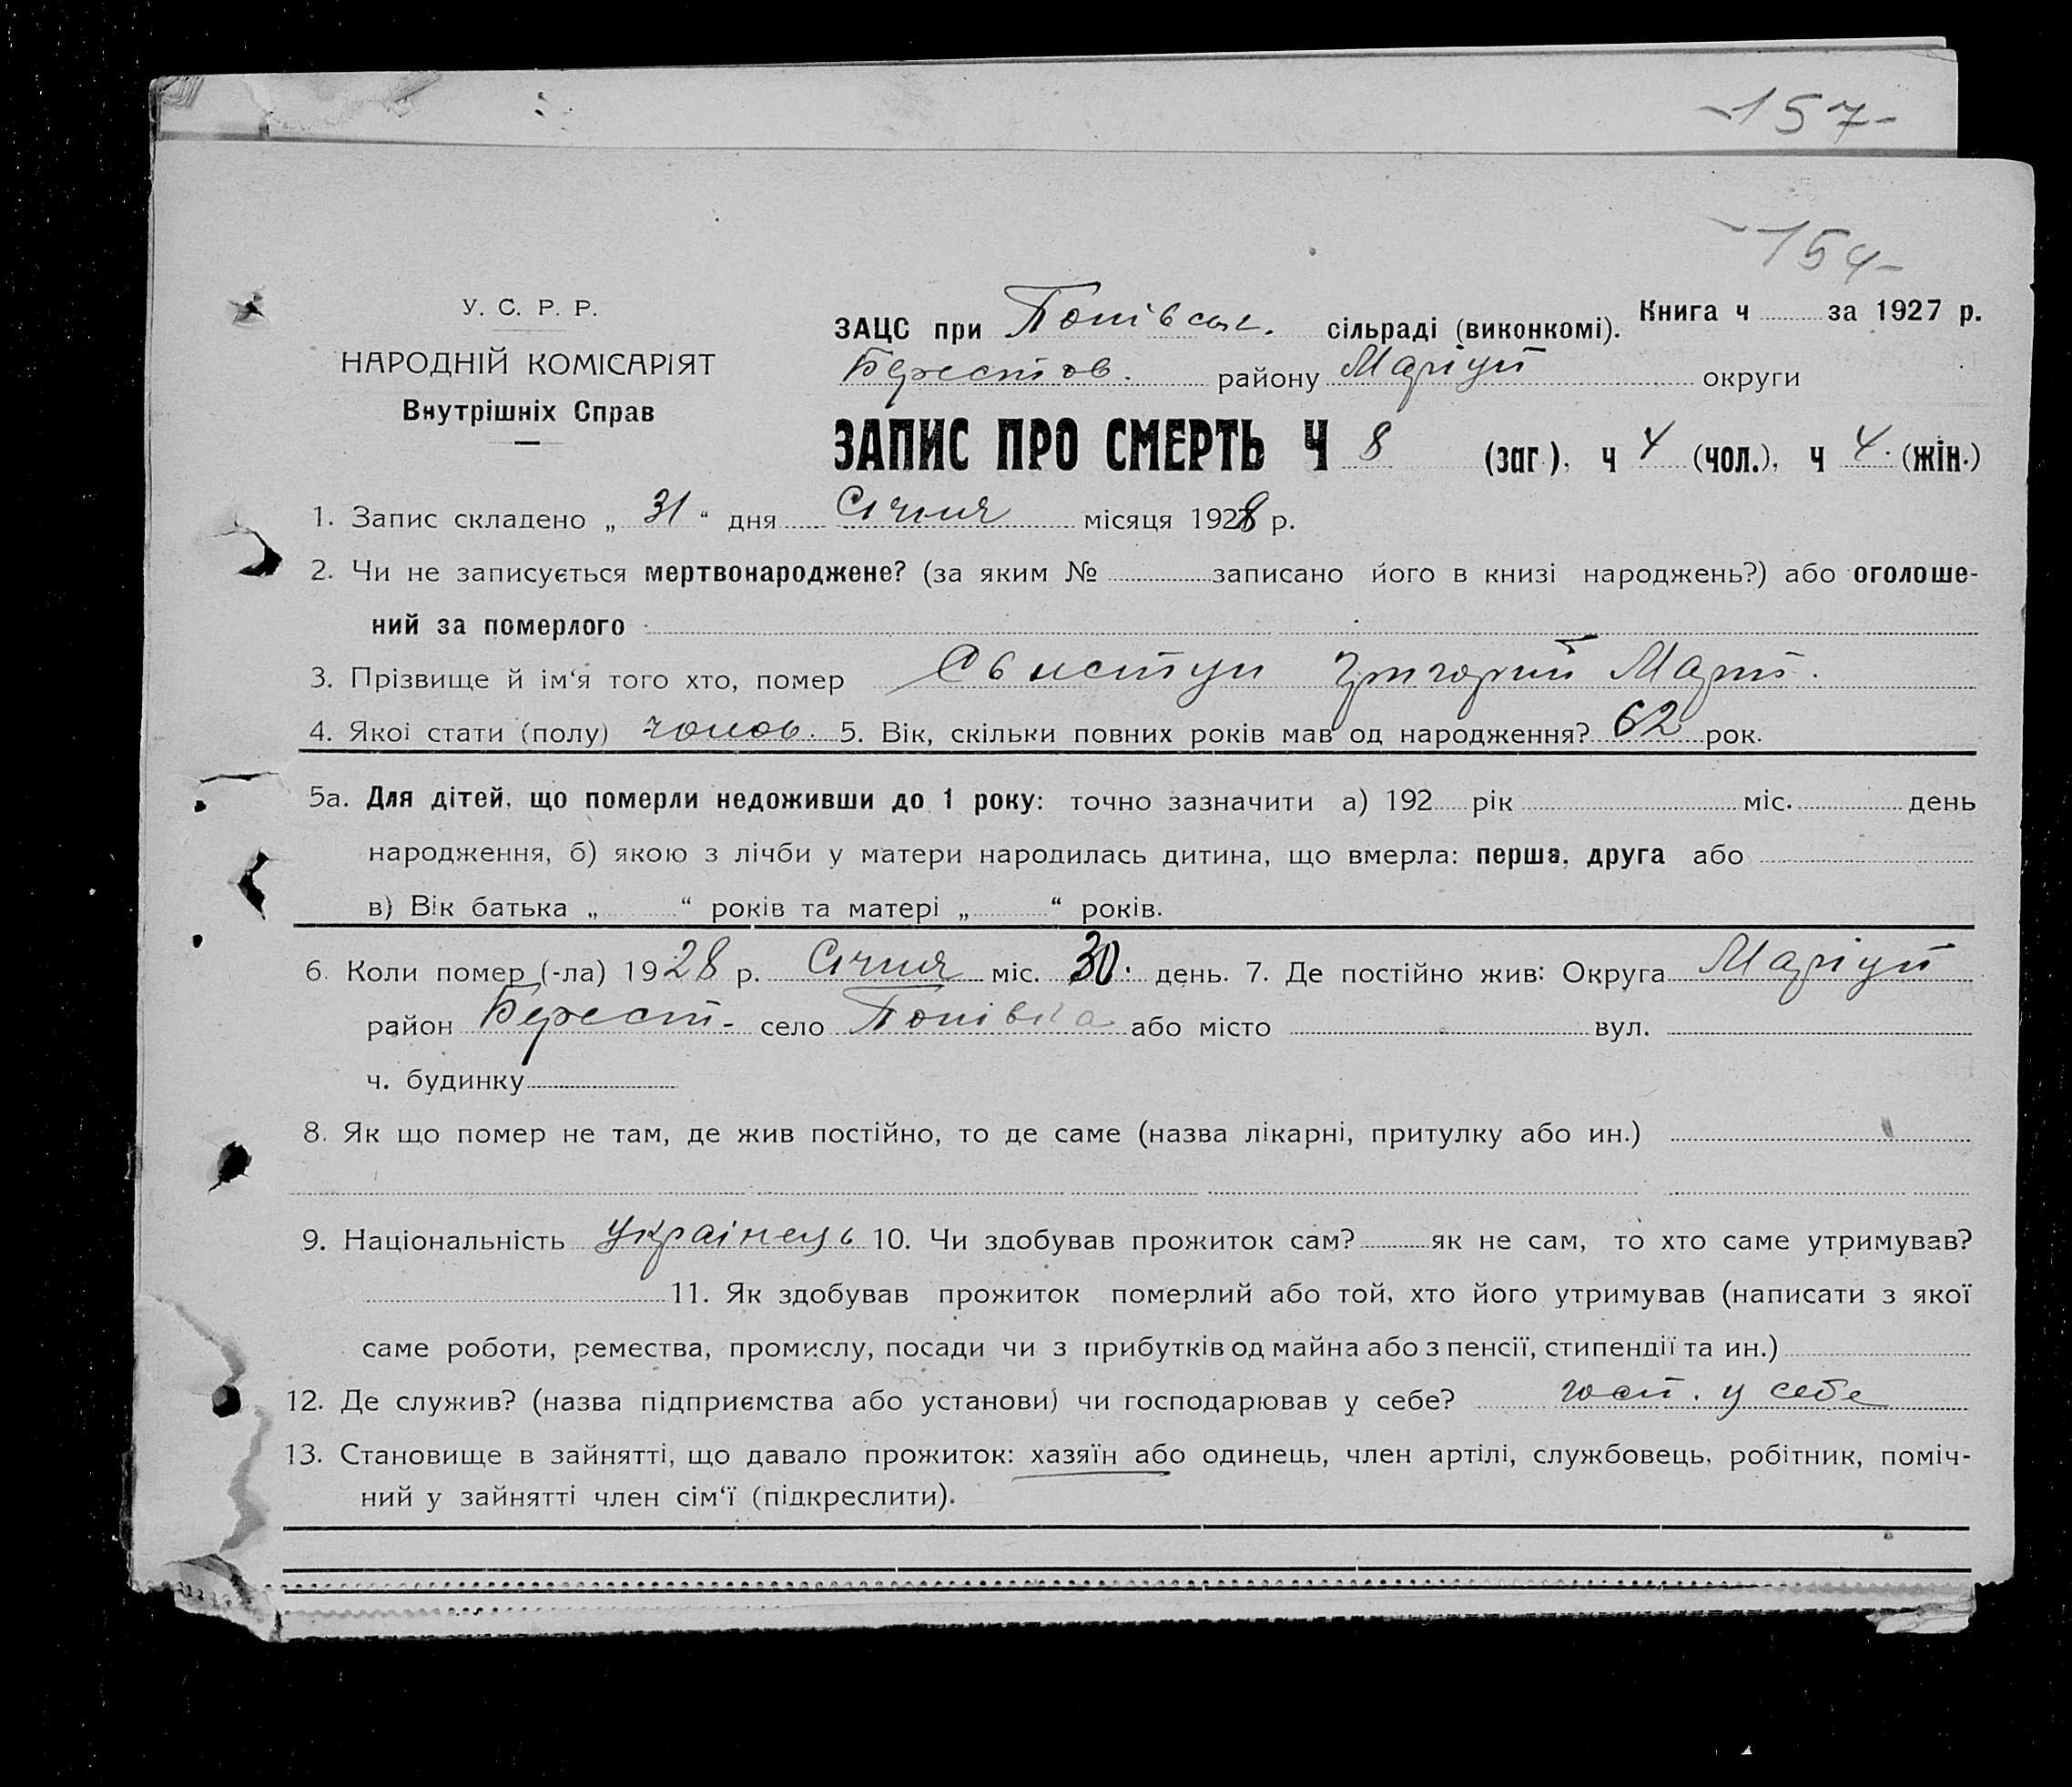 -157-
-154-
У. С. Р. Р.
НАРОДНІЙ КОМІСАРІЯТ
Внутрішніх Справ
ЗАЦС при Попівськ. сільраді (виконкомі). Книга ч ........ за 1927 р.
Берестов. району Маріуп округи
ЗАПИС ПРО СМЕРТЬ Ч 8 (заг.), ч 4 (чол.), ч 4. (жін.)
1. Запис складено „ 31 “ дня Січня місяця 1928 р.
2. Чи не записується мертвонароджене? (за яким № ........ записано його в книзі народжень?) або оголоше-
ний за померлого
3. Прізвище й ім‘я того хто, помер Свистун Григорий Март.
4. Якоі стати (полу) чолов. 5. Вік, скільки повних років мав од народження? 62 рок.
5а. Для дітей, що померли недоживши до 1 року: точно зазначити а) 192 рік ........ міс. ........ день
народження, б) якою з лічби у матери народилась дитина, що вмерла: перша, друга або
в) Вік батька „ ........ “ років та матері „ ........ “ років.
6. Коли помер (-ла) 1928 р. Січня міс. 30. день. 7. Де постійно жив: Округа Маріуп
район Берест- село Попівка або місто ........ вул.
ч. будинку
8. Як що помер не там, де жив постійно, то де саме (назва лікарні, притулку або ин.)
9. Національність украінець 10. Чи здобував прожиток сам? ........ як не сам, то хто саме утримував?
11. Як здобував прожиток померлий або той, хто його утримував (написати з якої
саме роботи, ремества, промислу, посади чи з прибутків од майна або з пенсії, стипендії та ин.)
12. Де служив? (назва підприємства або установи) чи господарював у себе? госп. у себе
13. Становище в зайнятті, що давало прожиток: хазяїн або одинець, член артілі, службовець, робітник, поміч-
ний у зайнятті член сім‘ї (підкреслити).